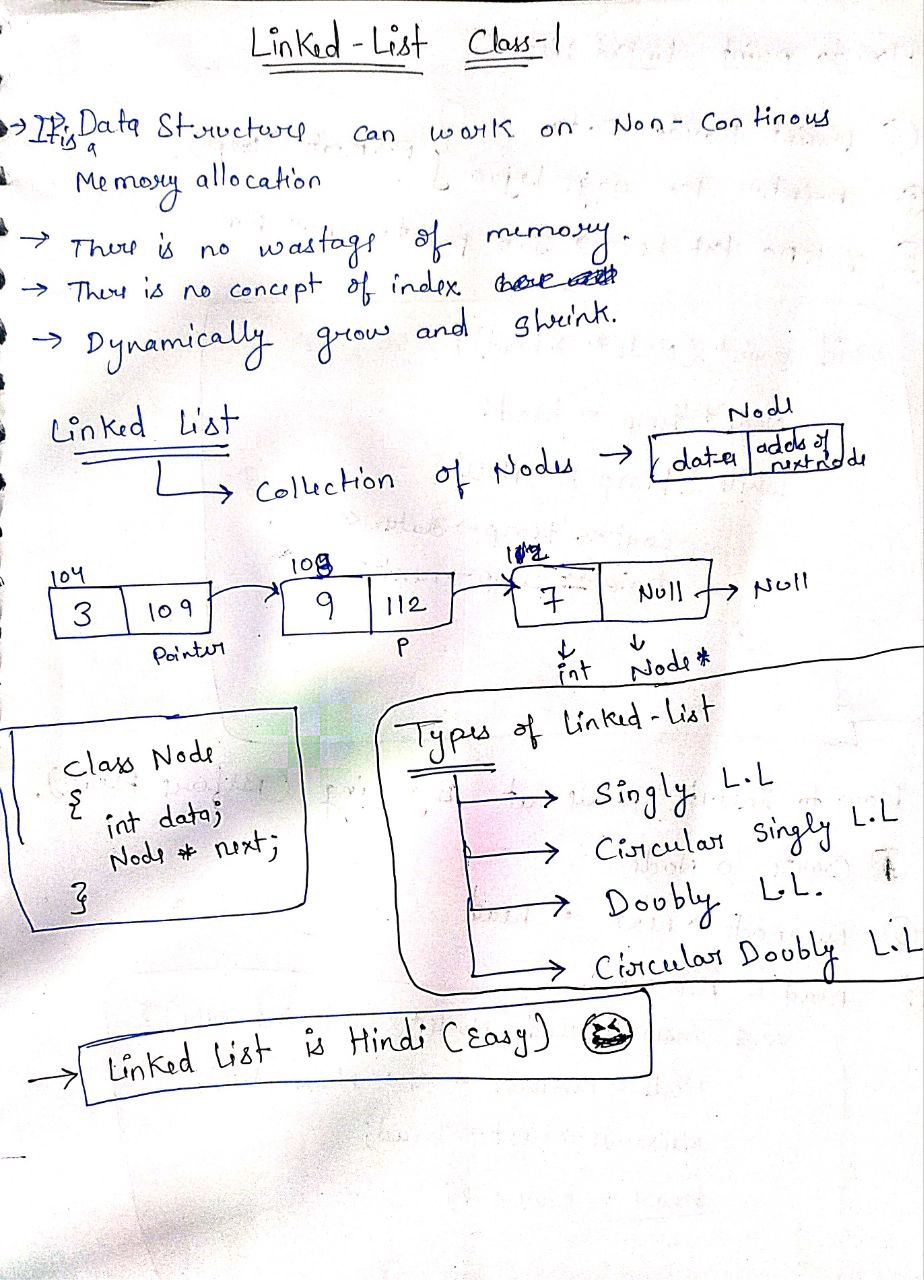 Linked-List Class-1
→ It is a Data Structure can work on Non-Continous
Memory allocation
→ There is no wastage of memory.
→ There is no concept of index
→ Dynamically grow and shrink.
Linked List
Collection of Nodes →
Node
data | adds of
next node
104
3 | 109
Pointer
109
9 | 112
P
112
7 | Null → Null
int Node*
class Node
{
int data;
Node * next;
}
Types of Linked-list
Singly L.L
Circular Singly L.L
Doubly L.L.
Circular Doubly L.L
→ Linked List is Hindi (Easy)